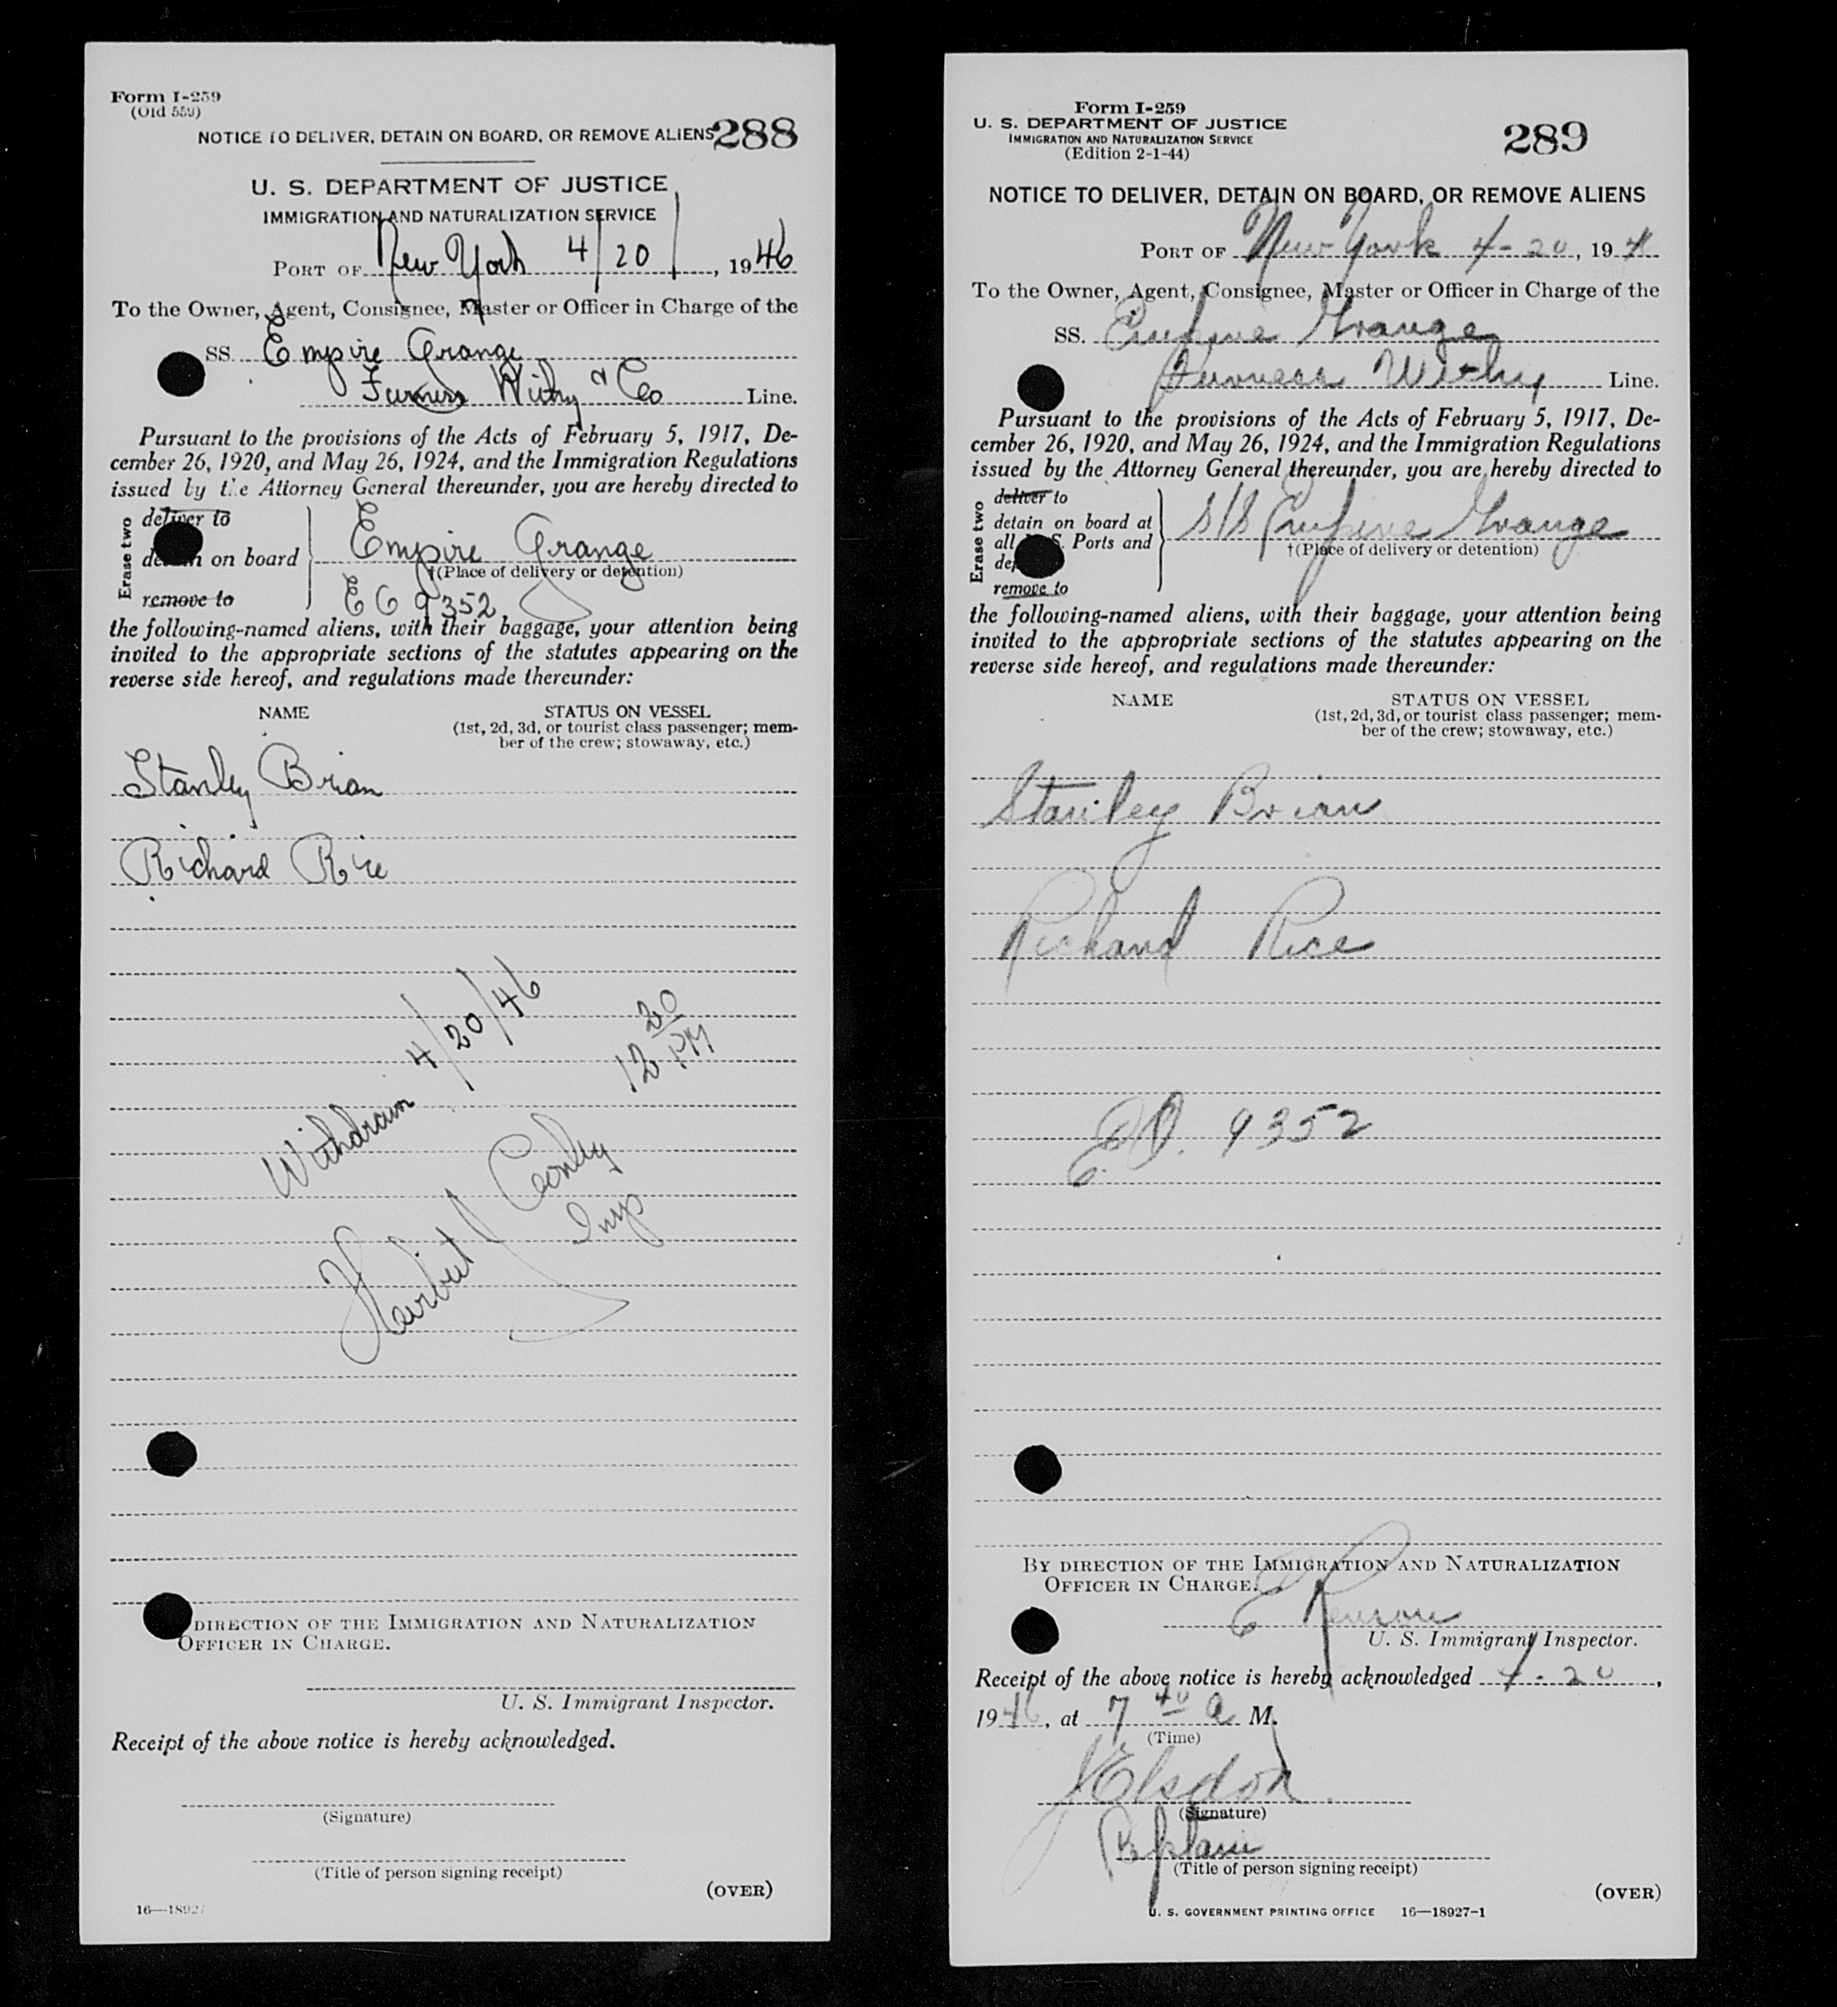 Form I-259
(Old 559)
288
NOTICE TO DELIVER, DETAIN ON BOARD, OR REMOVE ALIENS
U. S. DEPARTMENT OF JUSTICE
IMMIGRATION AND NATURALIZATION SERVICE
PORT OF New York 4/20/, 1946
To the Owner, Agent, Consignee, Master or Officer in Charge of the
SS. Empire Grange
Furness Withy & Co Line.
Pursuant to the provisions of the Acts of February 5, 1917, De-
cember 26, 1920, and May 26, 1924, and the Immigration Regulations
issued by the Attorney General thereunder, you are hereby directed to
Erase two
deliver to
detain on board
remove to
Empire Grange
†(Place of delivery or detention)
E O 9352
the following-named aliens, with their baggage, your attention being
invited to the appropriate sections of the statutes appearing on the
reverse side hereof, and regulations made thereunder:
NAME
STATUS ON VESSEL
(1st, 2d, 3d, or tourist class passenger; mem-
ber of the crew; stowaway, etc.)
Stanley Brian
Richard Rice
Withdrawn 4/20/46
12 20 PM
Herbert J
Insp
DIRECTION OF THE IMMIGRATION AND NATURALIZATION
OFFICER IN CHARGE.
U. S. Immigrant Inspector.
Receipt of the above notice is hereby acknowledged.
(Signature)
(Title of person signing receipt)
(OVER)
16—18927
Form I-259
U. S. DEPARTMENT OF JUSTICE
IMMIGRATION AND NATURALIZATION SERVICE
(Edition 2-1-44)
289
NOTICE TO DELIVER, DETAIN ON BOARD, OR REMOVE ALIENS
PORT OF New York 4-20, 194
To the Owner, Agent, Consignee, Master or Officer in Charge of the
SS. Empire Grange
Furness Withy Line.
Pursuant to the provisions of the Acts of February 5, 1917, De-
cember 26, 1920, and May 26, 1924, and the Immigration Regulations
issued by the Attorney General thereunder, you are hereby directed to
Erase two
deliver to
detain on board at
all U. S. Ports and
remove to
S/S Empire Grange
†(Place of delivery or detention)
the following-named aliens, with their baggage, your attention being
invited to the appropriate sections of the statutes appearing on the
reverse side hereof, and regulations made thereunder:
NAME
STATUS ON VESSEL
(1st, 2d, 3d, or tourist class passenger; mem-
ber of the crew; stowaway, etc.)
Stanley Brian
Richard Rice
E.O. 9352
BY DIRECTION OF THE IMMIGRATION AND NATURALIZATION
OFFICER IN CHARGE.
U. S. Immigrant Inspector.
Receipt of the above notice is hereby acknowledged 4-20,
1946, at 7 40 a M.
(Time)
J Elsdon
(Signature)
Captain
(Title of person signing receipt)
(OVER)
U. S. GOVERNMENT PRINTING OFFICE 16—18927-1